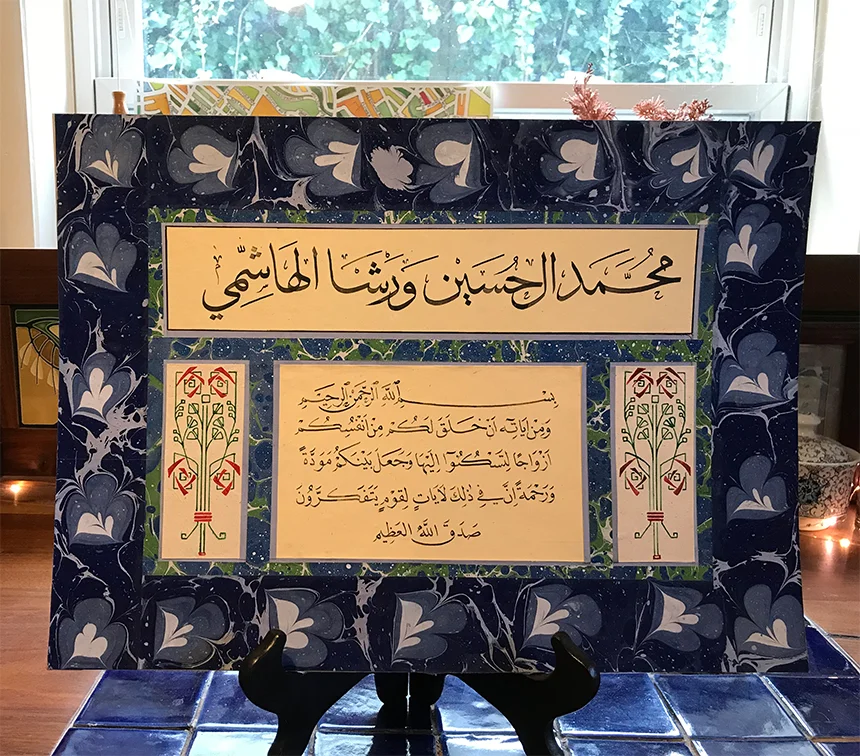 محمّد الحُسَين وَرَشَا الهَاشِمّي
بِسْمِ اللَّهِ الرَّحْمٰنِ الرَّحِيمِ
وَمِنْ اٰيَاتِهِ اَنْ خَلَقَ لَكُمْ مِنْ اَنْفُسِكُمْ
اَزْوَاجًا لِتَسْكُنُوٓا اِلَيْهَا وَجَعَلَ بَيْنَكُمْ مَوَدَّةً
وَرَحْمَةً اِنَّ فِي ذٰلِكَ لَاٰيَاتٍ لِقَوْمٍ يَتَفَكَّرُونَ
صَدَقَ اللَّهُ العَظِيم